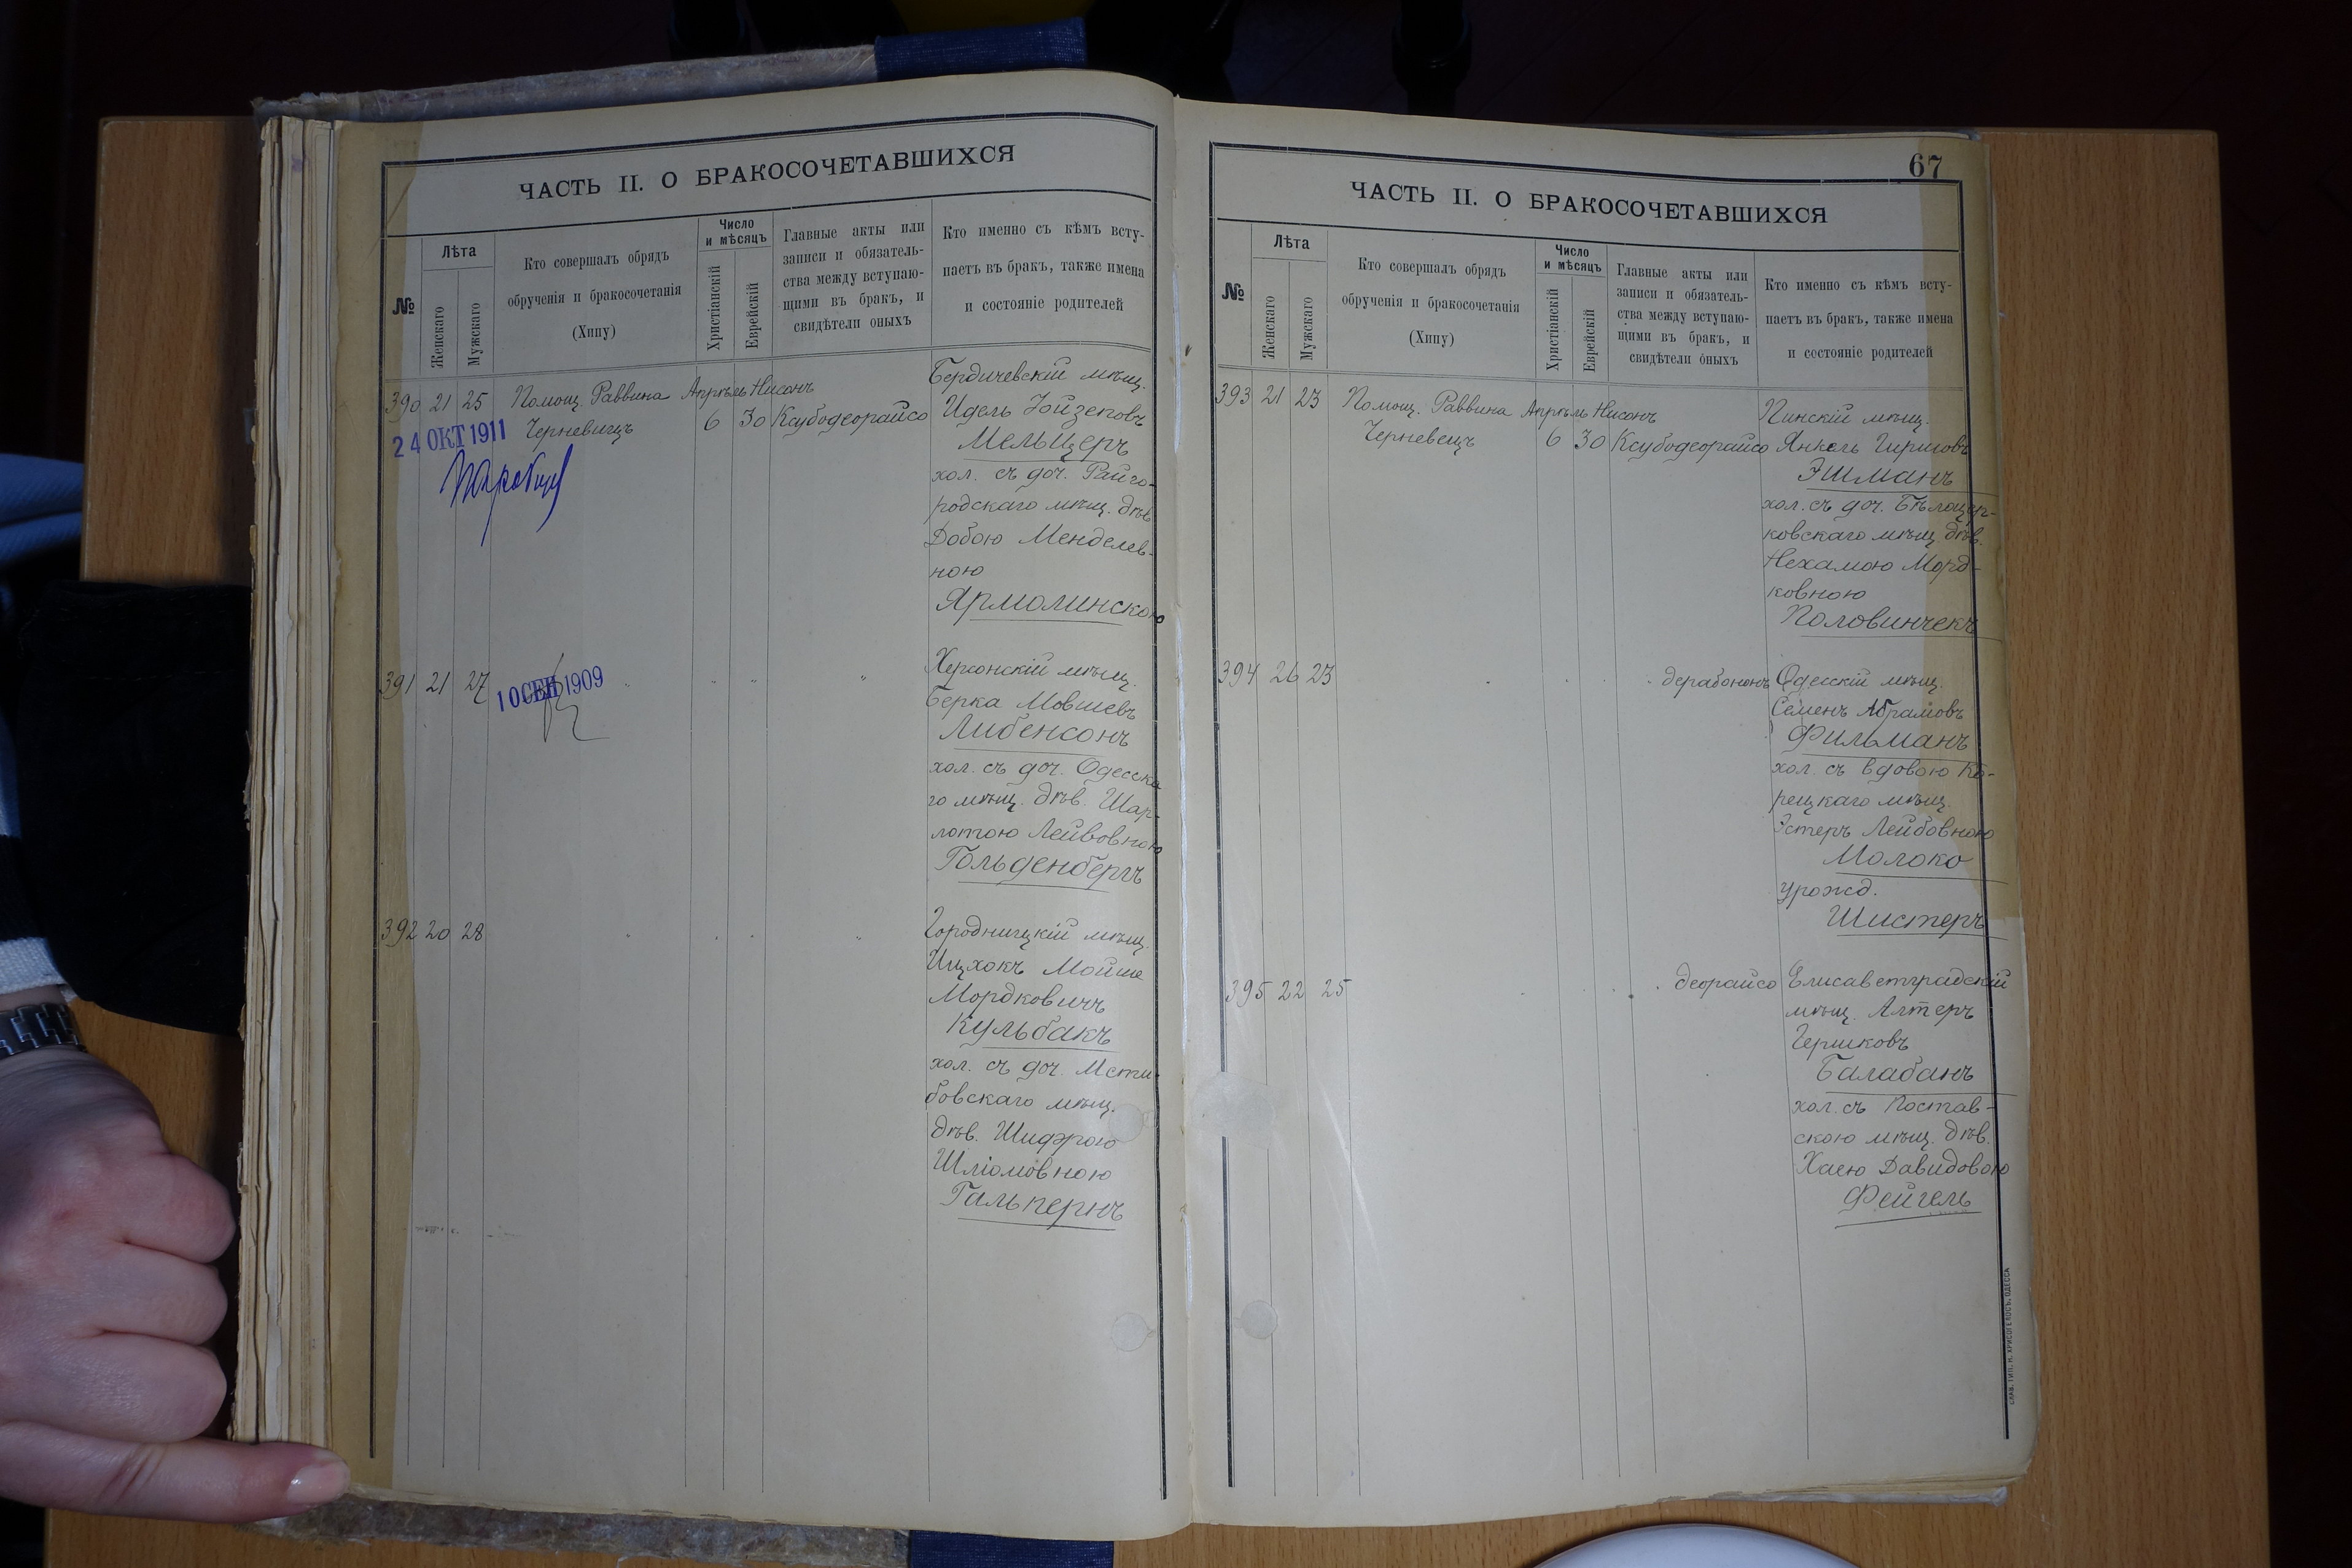 ЧАСТЬ II. О БРАКОСОЧЕТАВШИХСЯ
№
Лѣта
Женскаго
Мужскаго
Кто совершалъ обрядъ
обрученія и бракосочетанія
(Хипу)
Число
и мѣсяцъ
Христіанскій
Еврейскій
Главные акты или
записи и обязатель-
ства между вступаю-
щими въ бракъ, и
свидѣтели оныхъ
Кто именно съ кѣмъ всту-
паетъ въ бракъ, также имена
и состояніе родителей
390 21 25 Помощ. Раввина Апрѣль Нисонъ
Черневицъ 6 30 Ксубодеорайсо
24 ОКТ 1911
Бердичевскій мѣщ.
Идель Іойзеповъ
Мельцеръ
хол. съ доч. Райго-
родскаго мѣщ. дѣв.
Добою Менделев-
ною
Ярмолинскою
391 21 27 " " " "
10 СЕН 1909
Херсонскій мѣщ.
Берка Мовшевъ
Либенсонъ
хол. съ доч. Одесска
го мѣщ. дѣв. Шар-
лотою Лейвовною
Гольденбергъ
392 20 28 " " " "
Городницкій мѣщ.
Ицхокъ Мойше
Мордковичъ
Кульбакъ
хол. съ доч. Мсти-
бовскаго мѣщ.
дѣв. Шифрою
Шліомовною
Гальпернъ
67
ЧАСТЬ II. О БРАКОСОЧЕТАВШИХСЯ
№
Лѣта
Женскаго
Мужскаго
Кто совершалъ обрядъ
обрученія и бракосочетанія
(Хипу)
Число
и мѣсяцъ
Христіанскій
Еврейскій
Главные акты или
записи и обязатель-
ства между вступаю-
щими въ бракъ, и
свидѣтели оныхъ
Кто именно съ кѣмъ всту-
паетъ въ бракъ, также имена
и состояніе родителей
393 21 23 Помощ. Раввина Апрѣль Нисонъ
Черневецъ 6 30 Ксубодеорайсо
Пинскій мѣщ.
Янкель Гиршовъ
Эшманъ
хол. съ доч. Бѣлоцер-
ковскаго мѣщ. дѣв.
Нехамою Морд-
ковною
Половинчекъ
394 26 23 " " " " дерабононъ
Одесскій мѣщ.
Семенъ Абрамовъ
Фильманъ
хол. съ вдовою Ко-
рецкаго мѣщ.
Эстеръ Лейбовною
Молоко
урожд.
Шистеръ
395 22 25 " " " " деорайсо
Елисаветградскій
мѣщ. Алтеръ
Гершковъ
Балабанъ
хол. съ Постав-
скою мѣщ. дѣв.
Хаею Давидовою
Фейгель
СЛАВ. ТИП. Н. ХРИСОГЕЛОСЪ, ОДЕССА